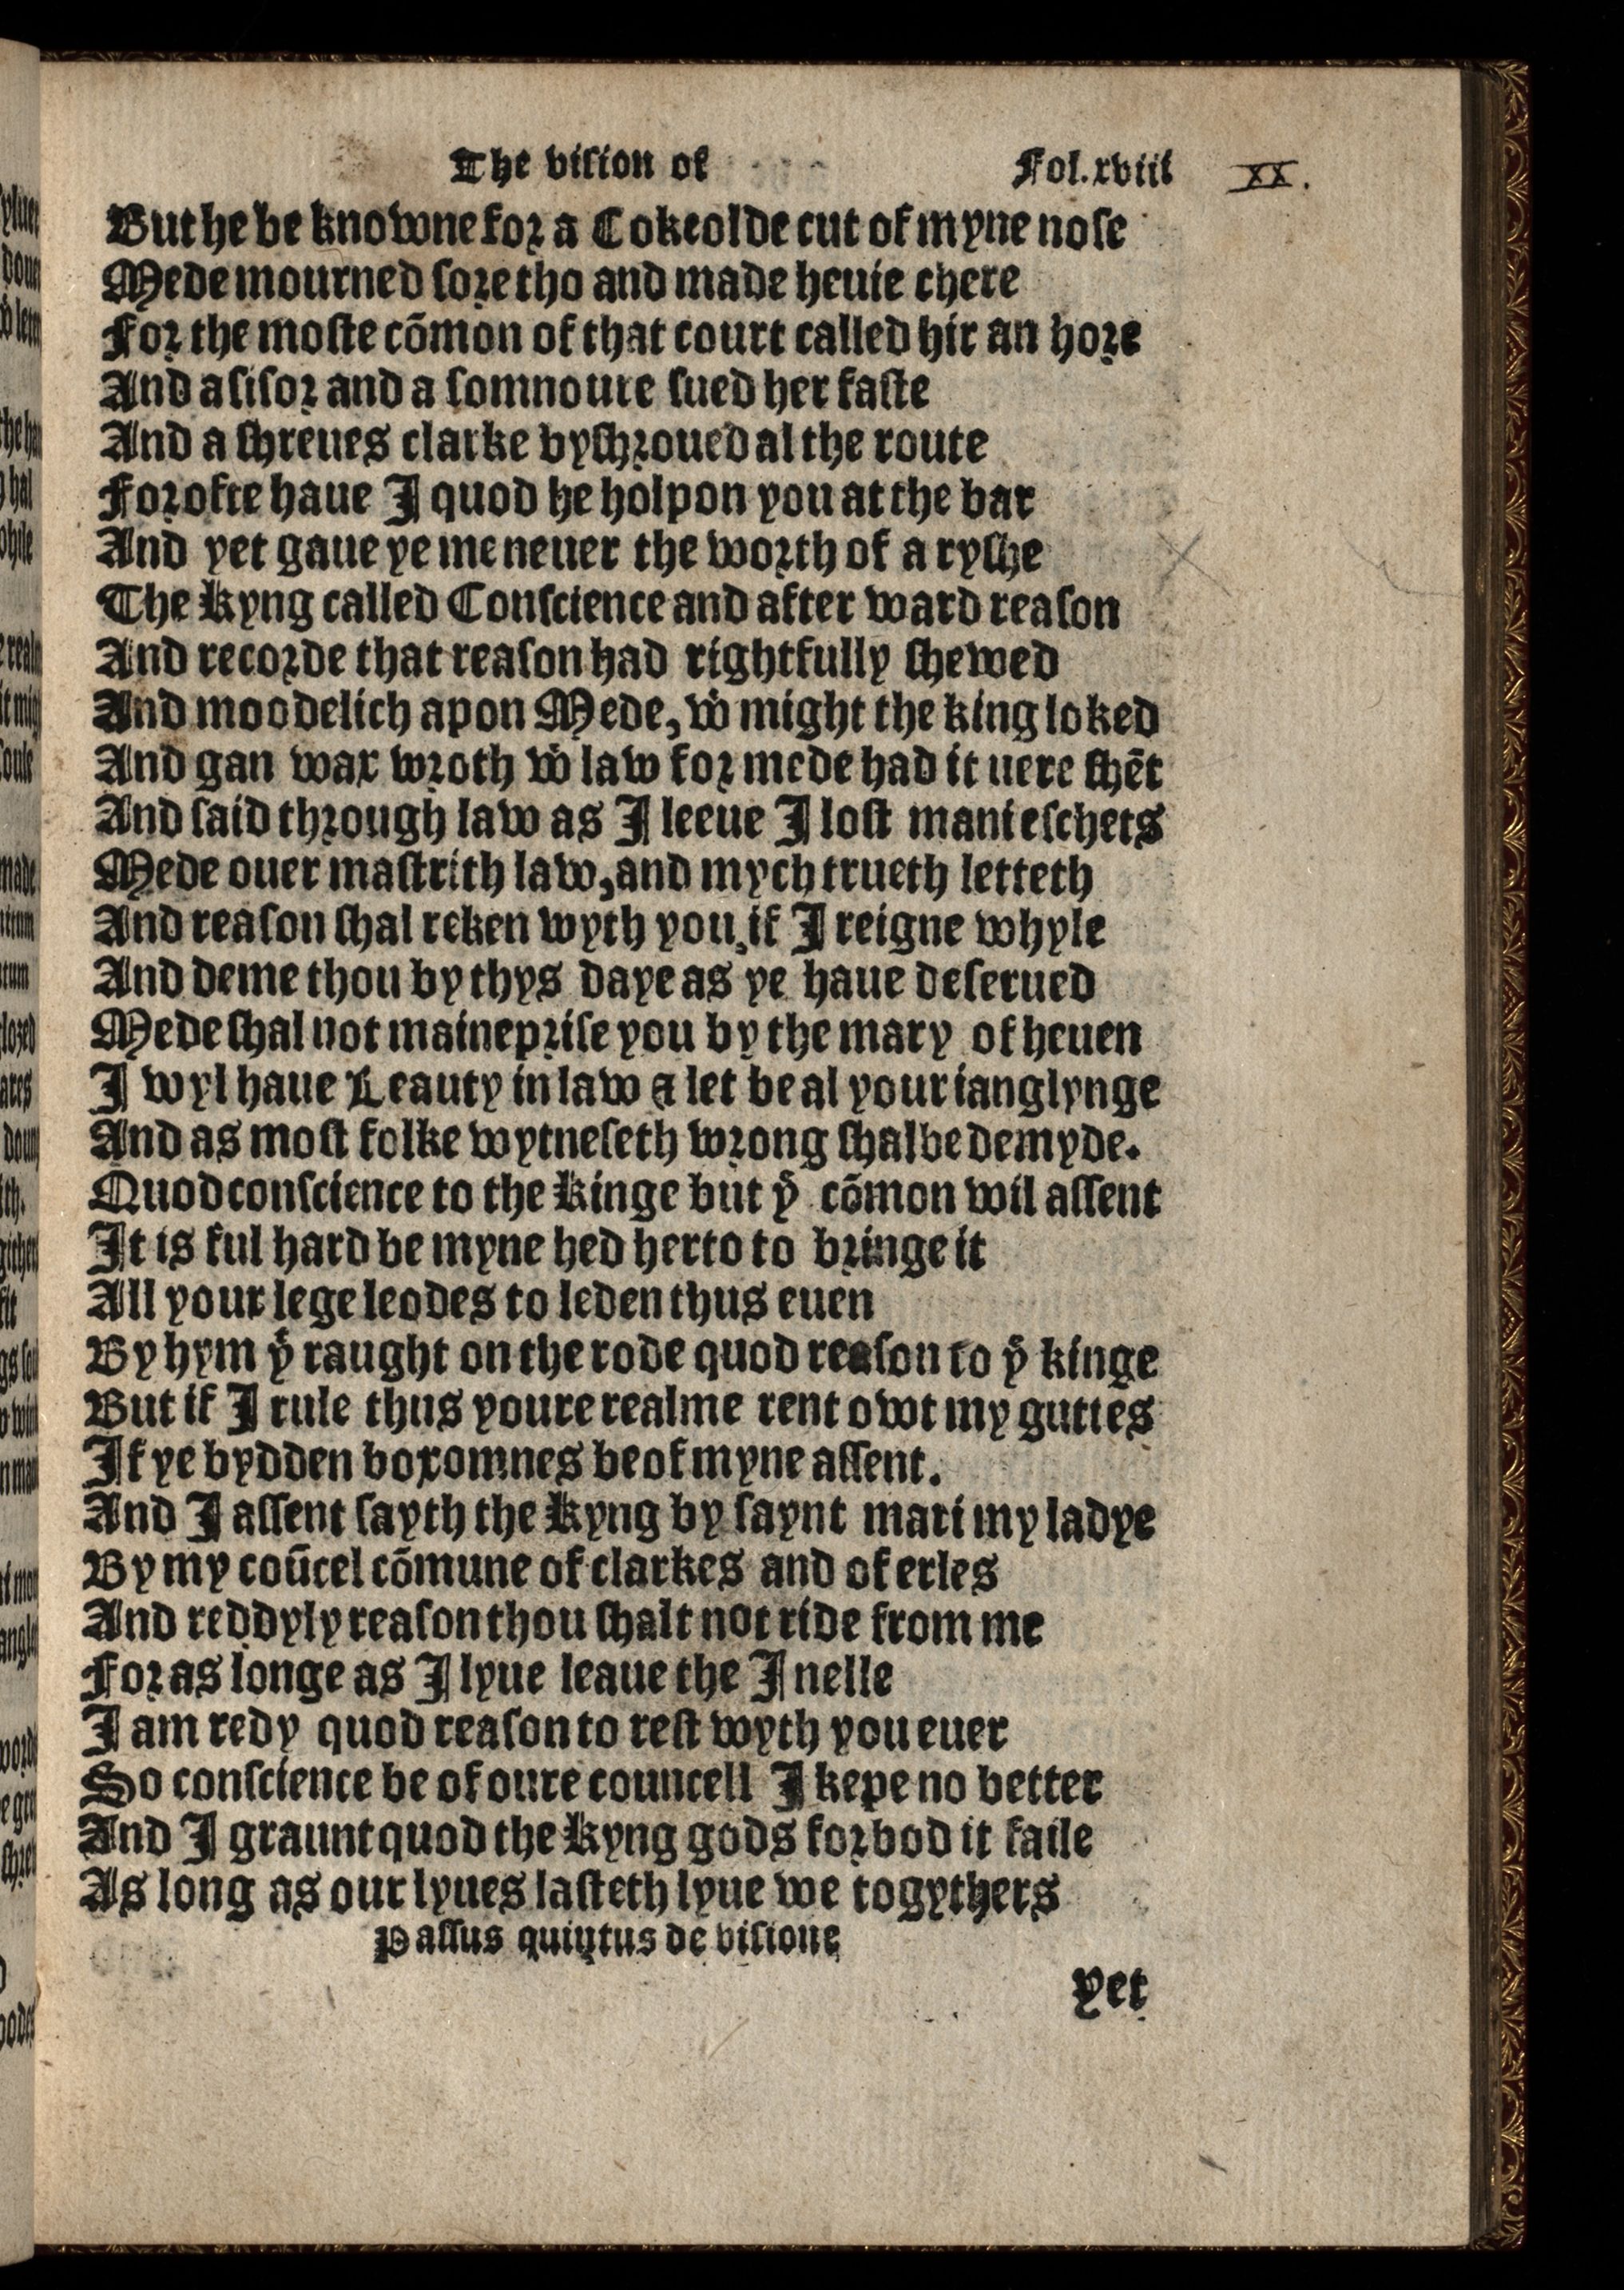 The vision of Fol.xviii xx.
But he be knowne for a Cokeolde cut of myne nose
Mede mourned sore tho and made heuie chere
For the moste cōmon of that court called hir an hore
And a sisor and a somnoure sued her faste
And a shreues clarke byshroued al the route
For ofte haue I quod he holpon you at the bar
And yet gaue ye me neuer the worth of a ryshe
The Kyng called Conscience and after ward reason
And recorde that reason had rightfully shewed
And moodelich apon Mede, wͭ might the king loked
And gan wax wroth wͭ law for mede had it uere shēt
And said through law as I leeue I lost manie schets
Mede ouer mastrith law, and mych trueth letteth
And reason shal reken wyth you, if I reigne whyle
And deme thou by thys daye as ye haue deserued
Mede shal not maineprise you by the mary of heuen
I wyl haue Leauty in law & let be al your ianglynge
And as most folke wytneseth wrong shal be demyde.
Quod conscience to the Kinge but yͤ cōmon wil assent
It is ful hard be myne hed herto to bringe it
All your lege leodes to leden thus euen
By hym yͭ raught on the rode quod reason to yͤ kinge
But if I rule thus youre realme rent owt my guttes
If ye bydden boxomnes be of myne assent.
And I assent sayth the Kyng by saynt mari my ladye
By my coūcel cōmune of clarkes and of erles
And reddyly reason thou shalt not ride from me
For as longe as I lyue leaue the I nelle
I am redy quod reason to rest wyth you euer
So conscience be of oure councell I kepe no better
And I graunt quod the Kyng gods forbod it faile
As long as our lyues lasteth lyue we togythers
Passus quintus de visione
Yet